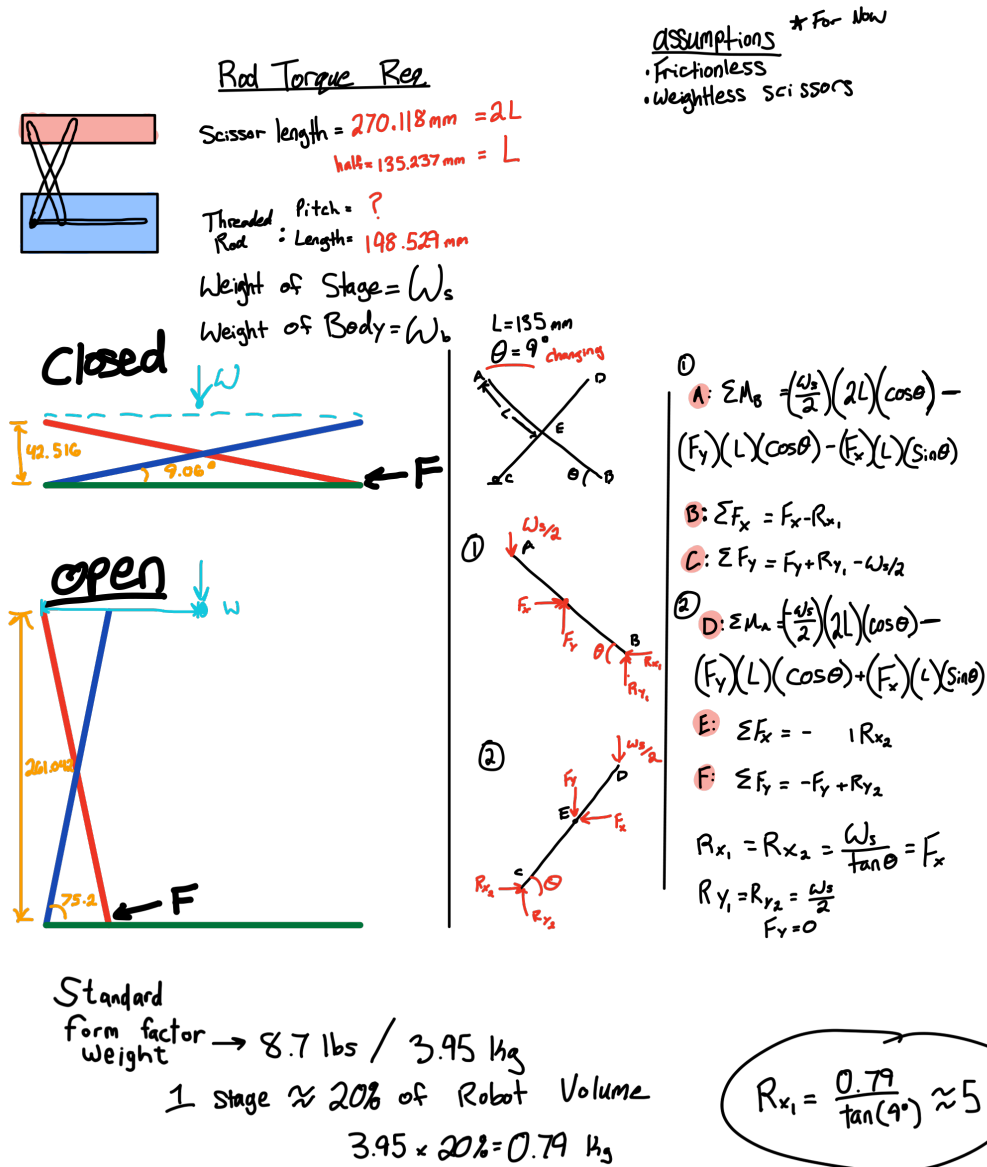 assumptions * For Now
• Frictionless
• Weightless scissors
Rod Torque Req.
Scissor length = 270.118 mm = 2L
half = 135.237 mm = L
Threaded Rod : Pitch = ?
Length = 198.529 mm
Weight of Stage = Ws
Weight of Body = Wb
Closed
W
42.516
9.06°
F
open
W
261.042
75.2
F
L = 135 mm
θ = 9° changing
A
D
L
E
C
θ
B
①
Ws/2
A
Fx
Fy
θ
B
Rx₁
Ry₁
②
Ws/2
D
Fy
E
Fx
C
θ
Rx₂
Ry₂
①
A: ΣM_B = (Ws/2)(2L)(cosθ) −
(Fy)(L)(cosθ) − (Fx)(L)(sinθ)
B: ΣFx = Fx - Rx₁
C: ΣFy = Fy + Ry₁ - Ws/2
②
D: ΣM_A = (-Ws/2)(2L)(cosθ) −
(Fy)(L)(cosθ) + (Fx)(L)(sinθ)
E: ΣFx = - Rx₂
F: ΣFy = -Fy + Ry₂
Rx₁ = Rx₂ = Ws/tanθ = Fx
Ry₁ = Ry₂ = Ws/2
Fy = 0
Standard
form factor
weight → 8.7 lbs / 3.95 kg
1 stage ≈ 20% of Robot Volume
3.95 × 20% = 0.79 kg
Rx₁ = 0.79/tan(9°) ≈ 5